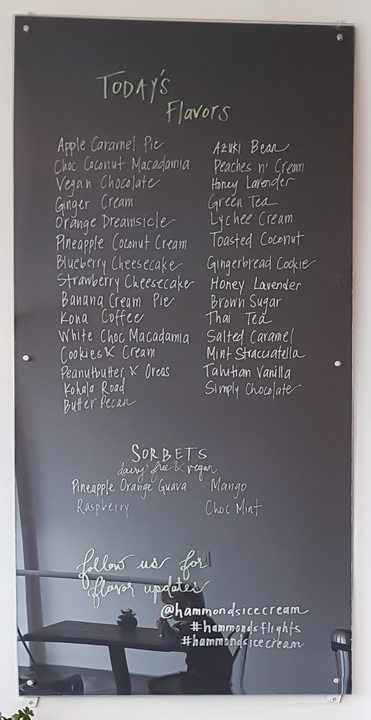 TODAY'S
Flavors
Apple Caramel Pie
Choc Coconut Macadamia
Vegan Chocolate
Ginger Cream
Orange Dreamsicle
Pineapple Coconut Cream
Blueberry Cheesecake
Strawberry Cheesecake
Banana Cream Pie
Kona Coffee
White Choc Macadamia
Cookies & Cream
Peanutbutter & Oreos
Kohala Road
Butter Pecan
Azuki Bean
Peaches n' Cream
Honey Lavender
Green Tea
Lychee Cream
Toasted Coconut
Gingerbread Cookie
Honey Lavender
Brown Sugar
Thai Tea
Salted Caramel
Mint Stracciatella
Tahitian Vanilla
Simply Chocolate
SORBETS
dairy free & vegan
Pineapple Orange Guava
Mango
Raspberry
Choc Mint
follow us for
flavor updates
@hammondsicecream
#hammondsflights
#hammondsicecream